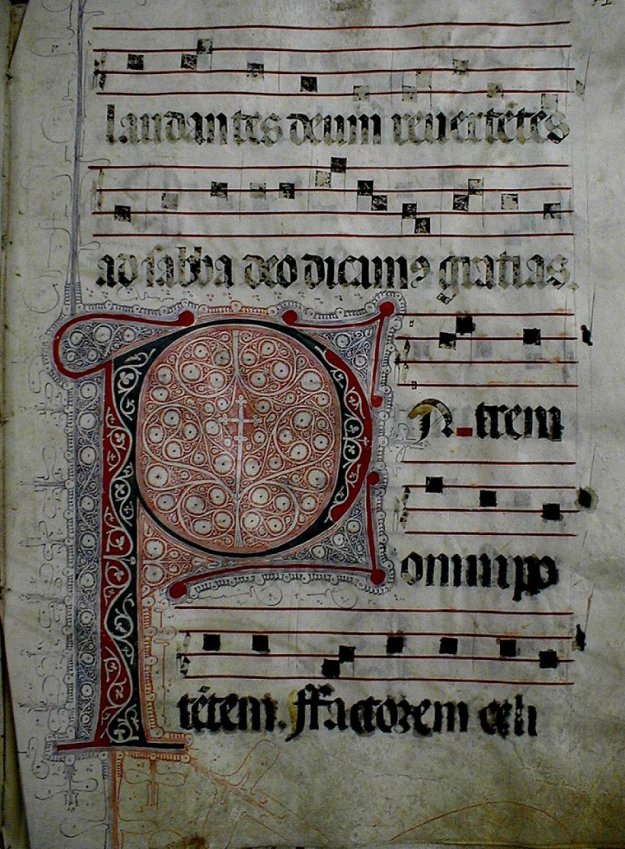 laudantes deum reuertētes
ad sabba deo dicamꝰ gratias.
PAtrem
omnipo
tētem. ffactorem celi